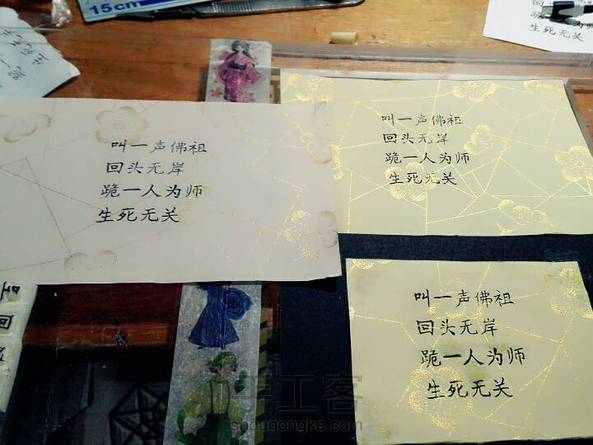 15cm
叫一声佛祖
回头无岸
跪一人为师
生死无关
叫一声佛祖
回头无岸
跪一人为师
生死无关
叫一声佛祖
回头无岸
跪一人为师
生死无关
生死无关
手工客
shougongke.com